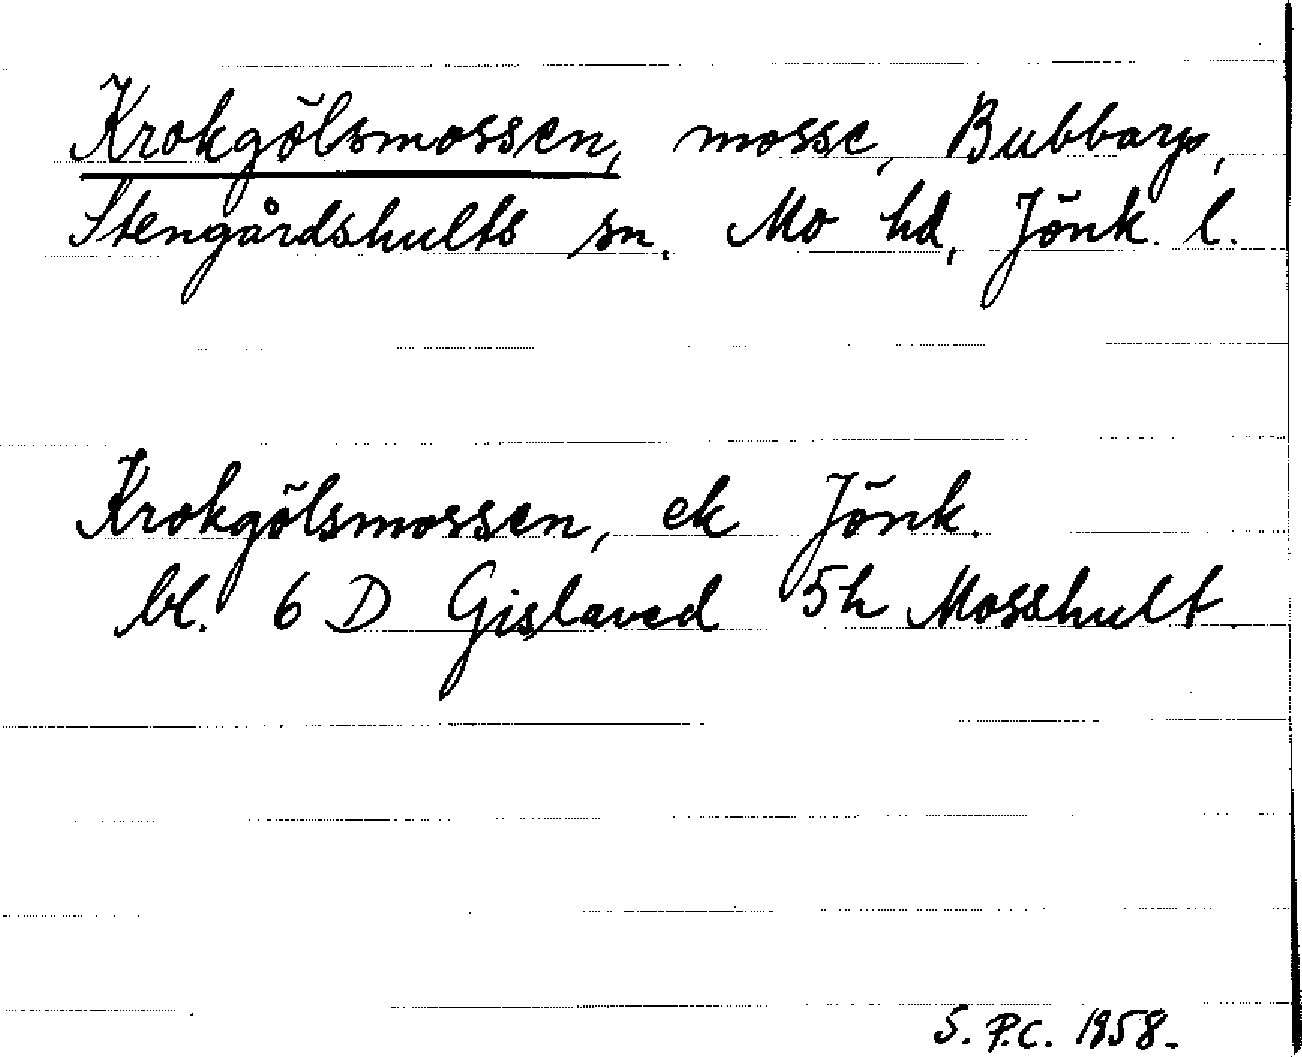 Krokgölsmossen, mosse, Bubbarp,
Stengårdshults sn. Mo hd, Jönk. l.
Krokgölsmossen, ek Jönk.
bl. 6 D Gislaved 5h Mosshult.
S. P.C. 1958.